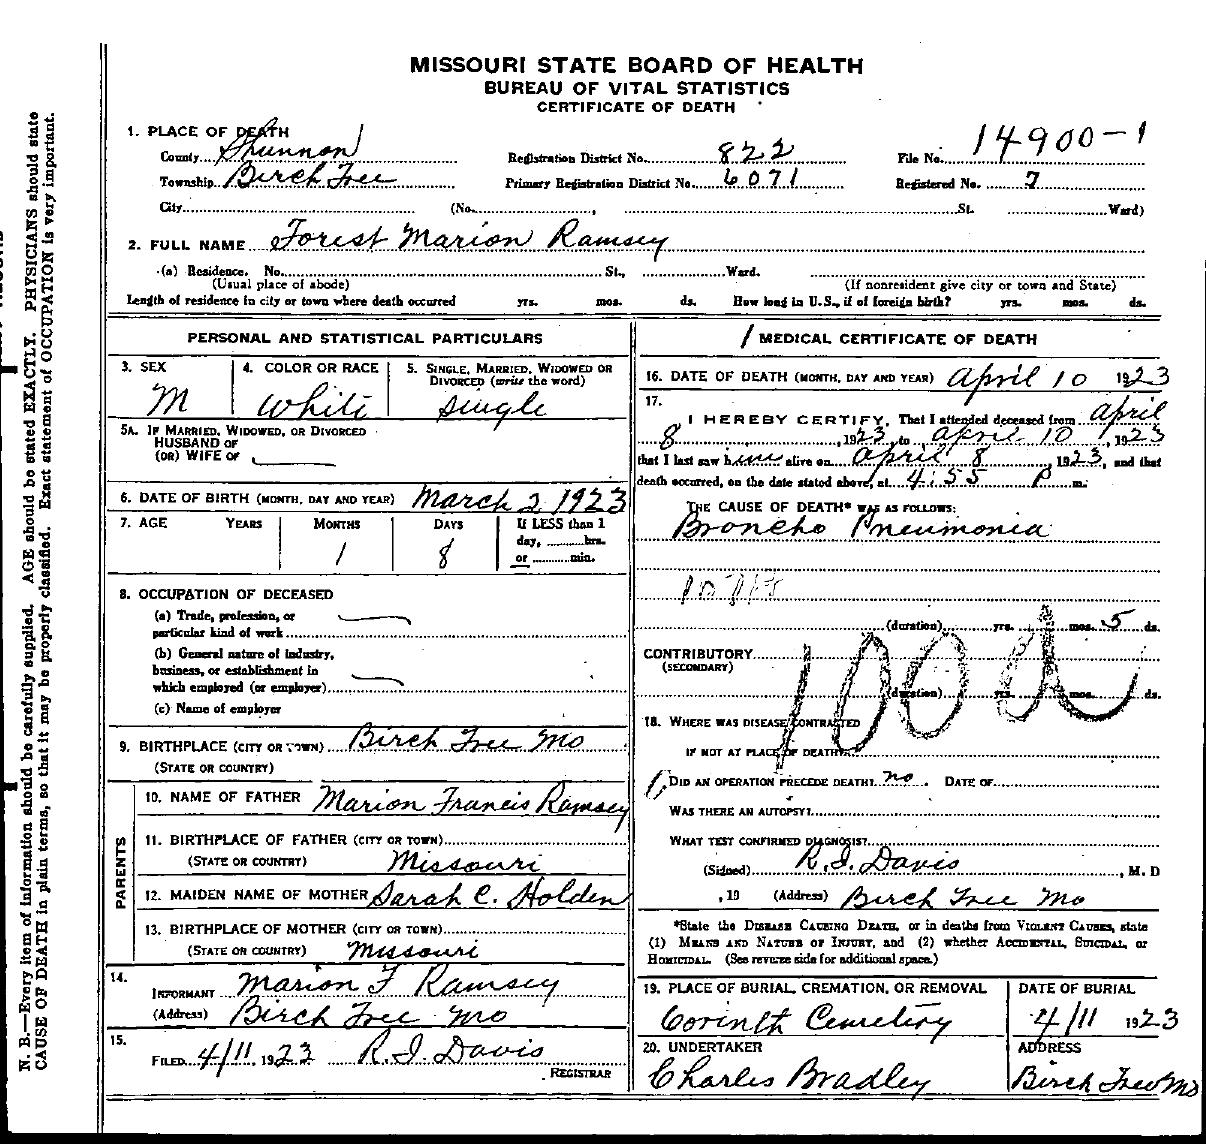 MISSOURI STATE BOARD OF HEALTH
BUREAU OF VITAL STATISTICS
CERTIFICATE OF DEATH
1. PLACE OF DEATH
County Shannon Registration District No. 822 File No. 14900-1
Township Birch Tree Primary Registration District No. 6071 Registered No. 7
City (No. , St. Ward)
2. FULL NAME Forest Marion Ramsey
(a) Residence. No. St., Ward.
(Usual place of abode) (If nonresident give city or town and State)
Length of residence in city or town where death occurred yrs. mos. ds. How long in U.S., if of foreign birth? yrs. mos. ds.
PERSONAL AND STATISTICAL PARTICULARS
3. SEX 4. COLOR OR RACE 5. SINGLE, MARRIED, WIDOWED OR
DIVORCED (write the word)
M White Single
5A. IF MARRIED, WIDOWED, OR DIVORCED
HUSBAND OF
(OR) WIFE OF
6. DATE OF BIRTH (MONTH, DAY AND YEAR) March 2 1923
7. AGE YEARS MONTHS DAYS If LESS than 1
day, hrs.
1 8 or min.
8. OCCUPATION OF DECEASED
(a) Trade, profession, or
particular kind of work
(b) General nature of industry,
business, or establishment in
which employed (or employer)
(c) Name of employer
9. BIRTHPLACE (CITY OR TOWN) Birch Tree Mo
(STATE OR COUNTRY)
PARENTS
10. NAME OF FATHER Marion Francis Ramsey
11. BIRTHPLACE OF FATHER (CITY OR TOWN)
(STATE OR COUNTRY) Missouri
12. MAIDEN NAME OF MOTHER Sarah C. Holden
13. BIRTHPLACE OF MOTHER (CITY OR TOWN)
(STATE OR COUNTRY) Missouri
14.
INFORMANT Marion F Ramsey
(Address) Birch Tree Mo
15.
FILED 4/11, 1923 R. I. Davis
REGISTRAR
MEDICAL CERTIFICATE OF DEATH
16. DATE OF DEATH (MONTH, DAY AND YEAR) April 10 1923
17.
I HEREBY CERTIFY, That I attended deceased from April
8, 1923, to April 10, 1923
that I last saw him alive on April 8, 1923, and that
death occurred, on the date stated above, at 4:55 P m.
THE CAUSE OF DEATH* WAS AS FOLLOWS:
Broncho Pneumonia
(duration) yrs. mos. 5 ds.
CONTRIBUTORY
(SECONDARY)
(duration) yrs. mos. ds.
100a
18. WHERE WAS DISEASE CONTRACTED
IF NOT AT PLACE OF DEATH?
DID AN OPERATION PRECEDE DEATH? no. DATE OF
WAS THERE AN AUTOPSY?
WHAT TEST CONFIRMED DIAGNOSIS?
(Signed) R. I. Davis, M. D
, 19 (Address) Birch Tree Mo
*State the DISEASE CAUSING DEATH, or in deaths from VIOLENT CAUSES, state
(1) MEANS AND NATURE OF INJURY, and (2) whether ACCIDENTAL, SUICIDAL, or
HOMICIDAL. (See reverse side for additional space.)
19. PLACE OF BURIAL, CREMATION, OR REMOVAL DATE OF BURIAL
Corinth Cemetery 4/11 1923
20. UNDERTAKER ADDRESS
Charles Bradley Birch Tree Mo
N. B.—Every item of information should be carefully supplied. AGE should be stated EXACTLY. PHYSICIANS should state
CAUSE OF DEATH in plain terms, so that it may be properly classified. Exact statement of OCCUPATION is very important.